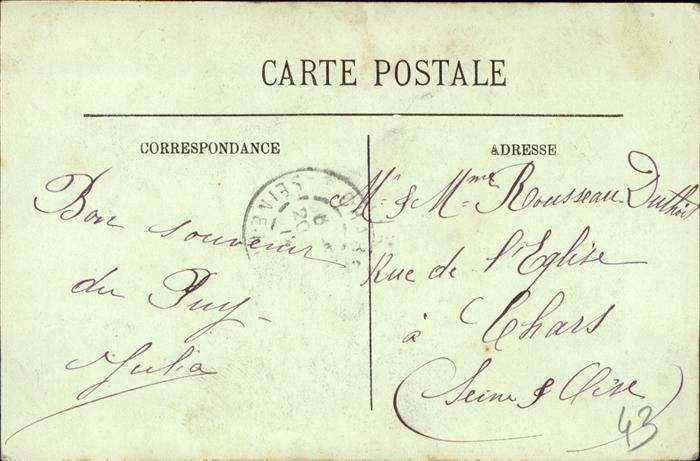 CARTE POSTALE
CORRESPONDANCE
ADRESSE
Bon souvenir
du Puy
Julia
Mr & Mme Rousseau Duthoit
Rue de l'Eglise
à Chars
(Seine & Oise)
43
CHARS
SEINE